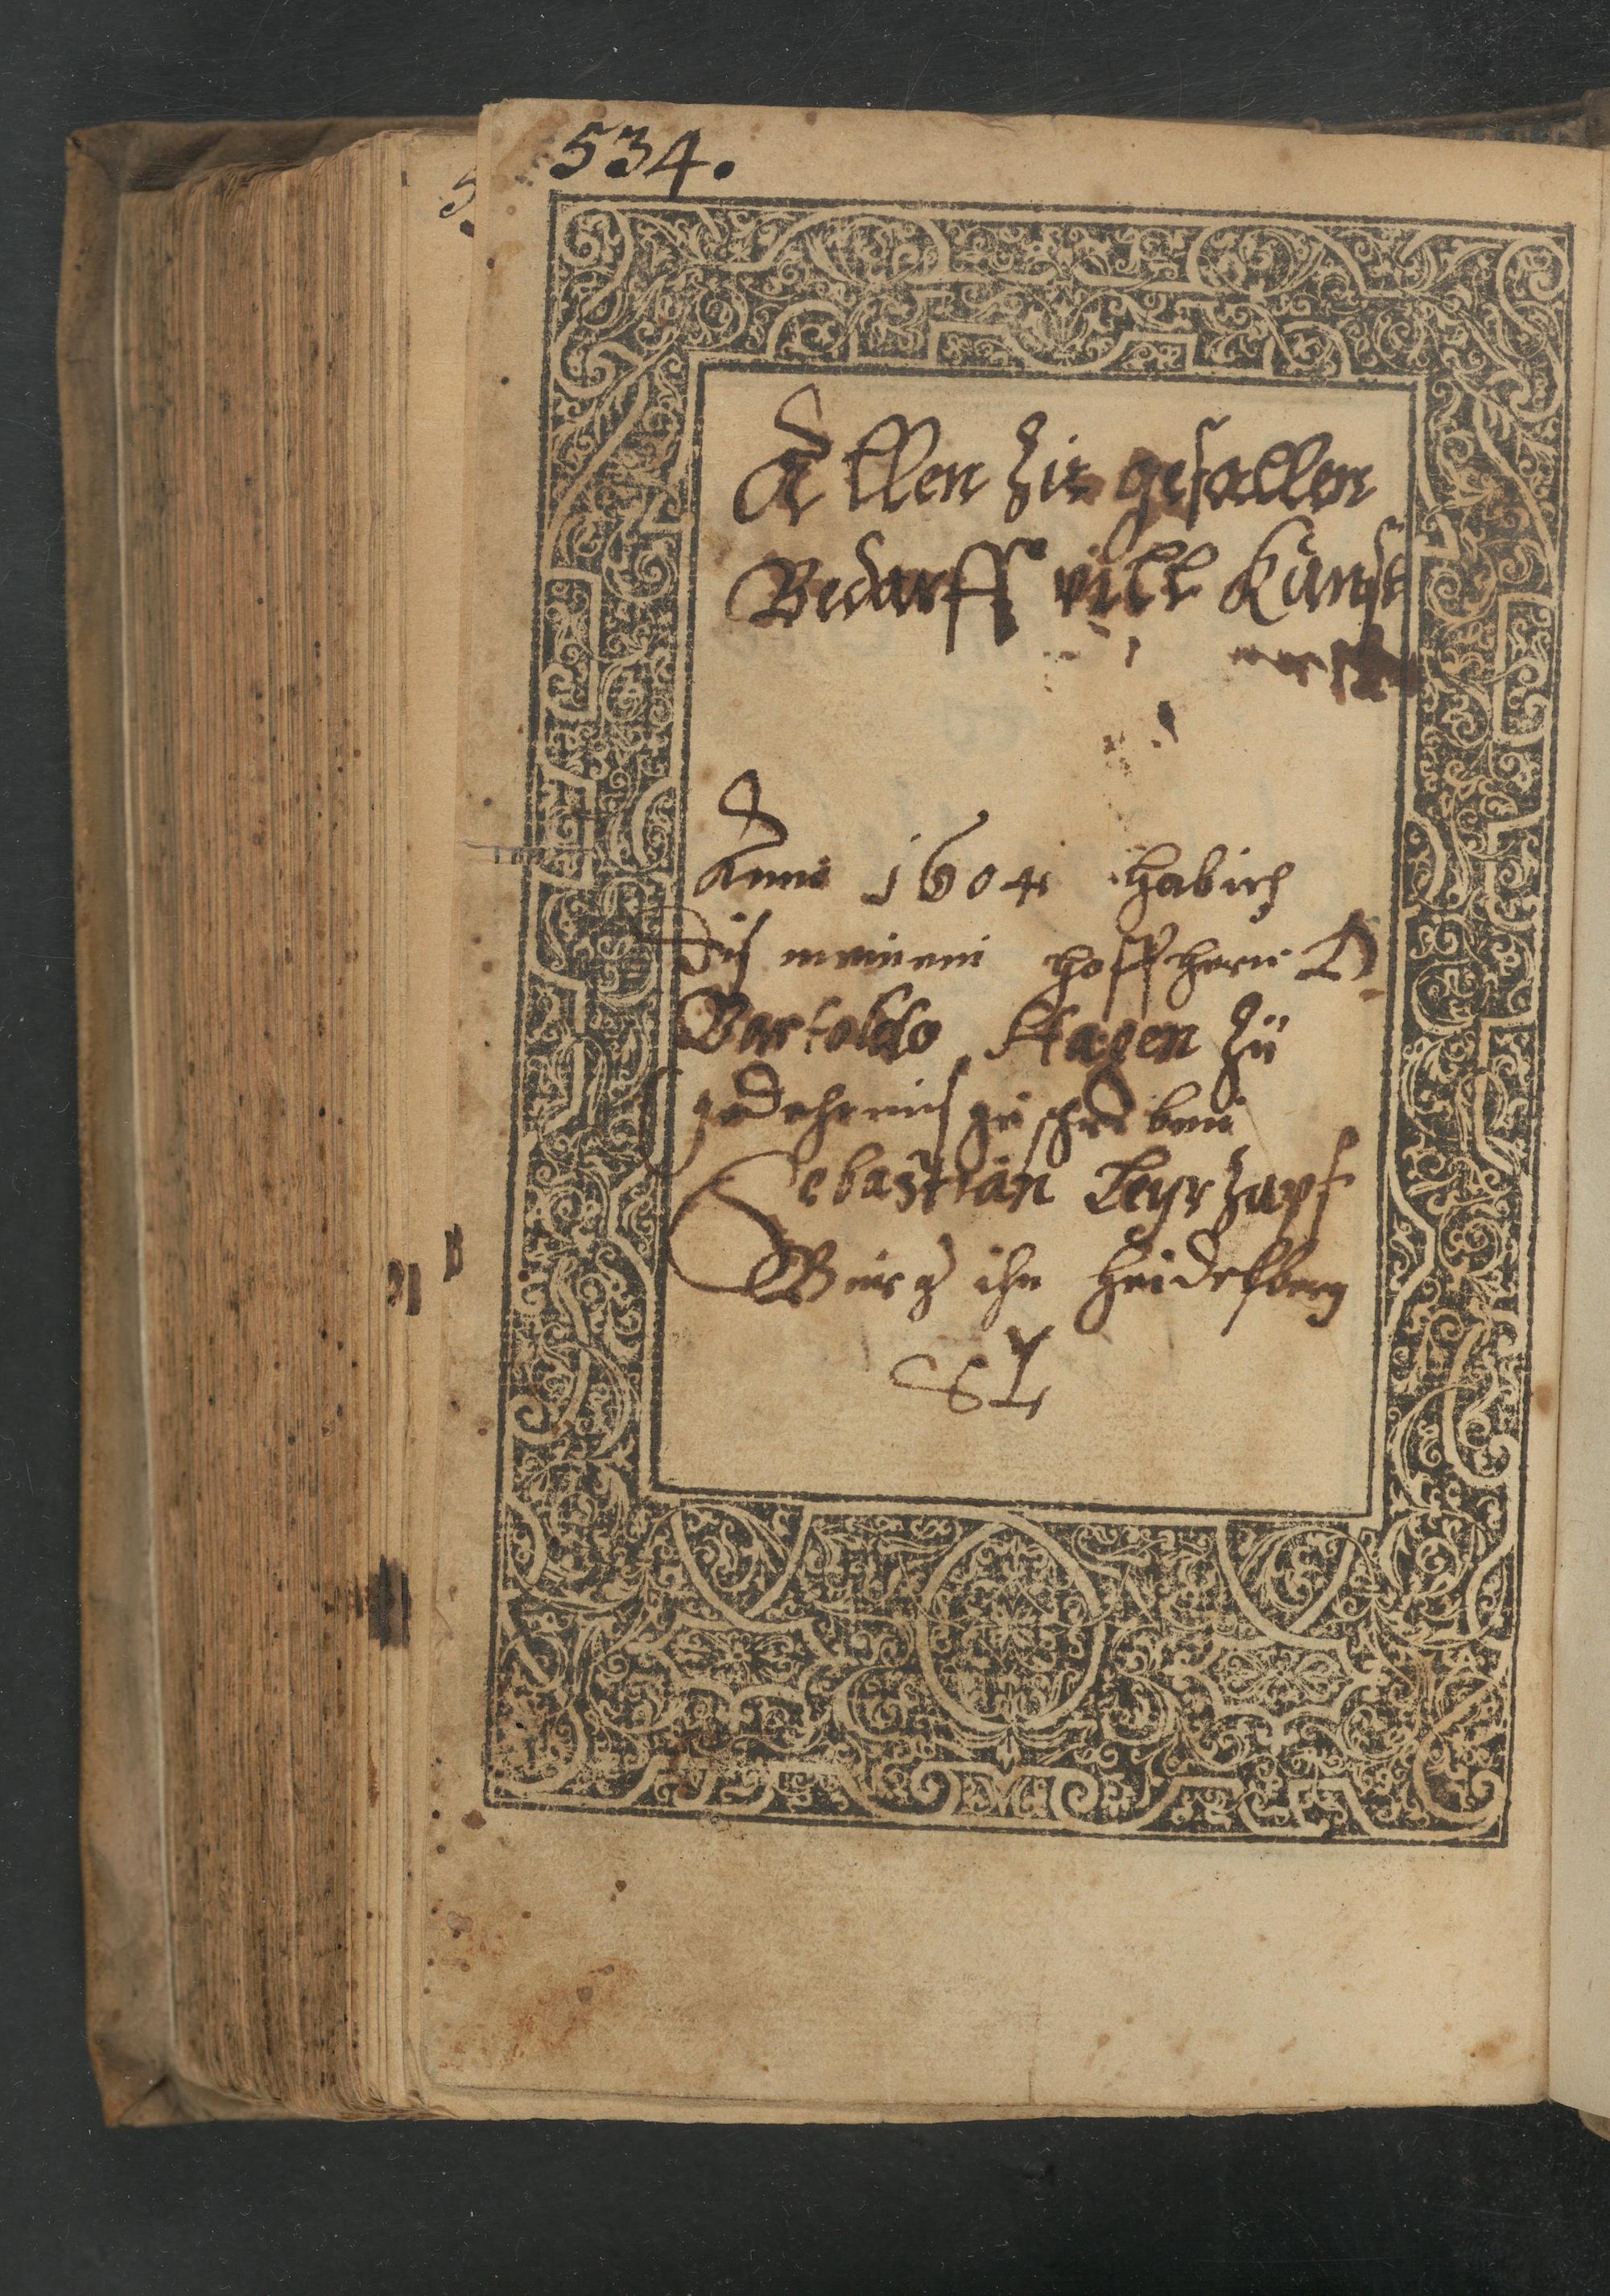 534.
Allen zu gefallen
Bedarff vill Kunst
Anno 1604 hab ich
Dis meinem hoffhern D
Bartoldo Hagen zu
gedechnis geschreben
Sebastian Leyrzapf
Burger ihn Heidelberg
SL